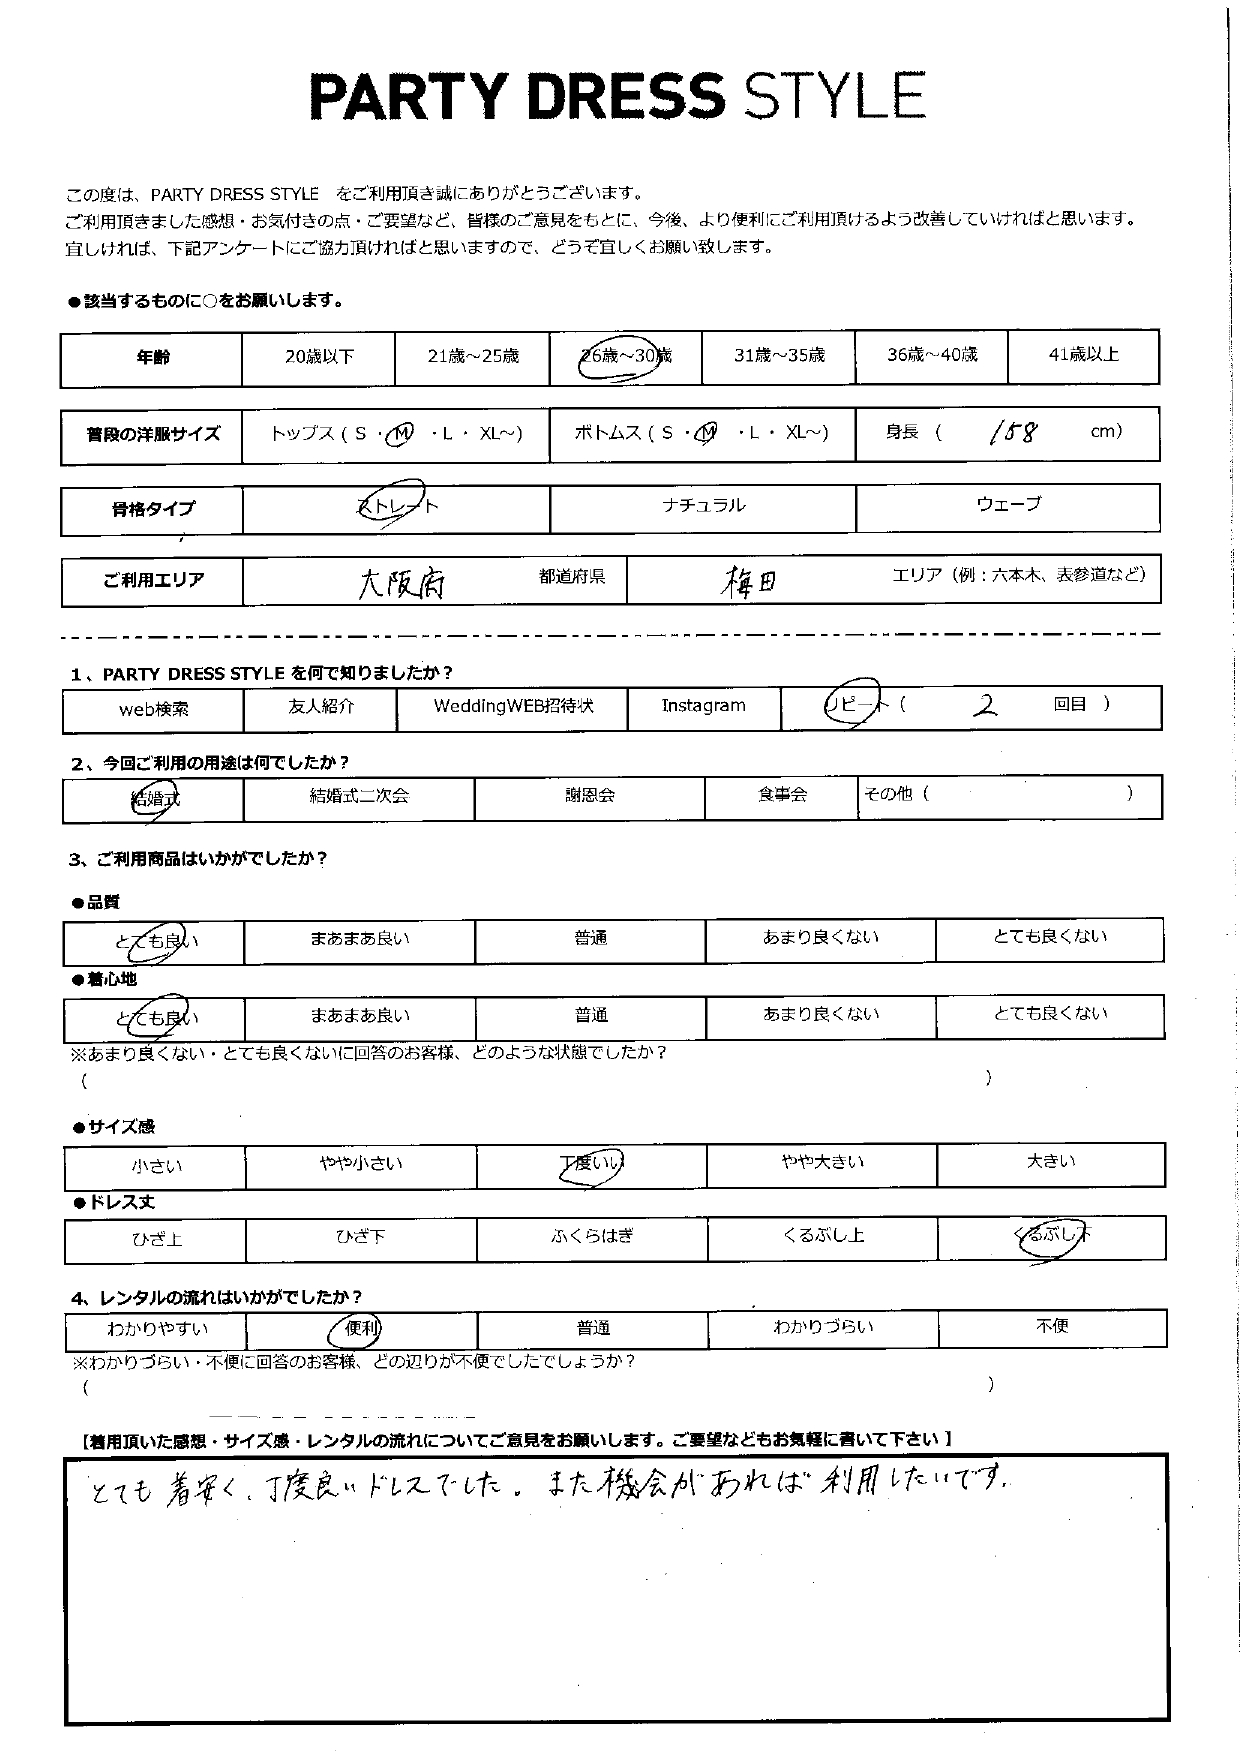 PARTY DRESS STYLE
この度は、PARTY DRESS STYLE をご利用頂き誠にありがとうございます。
ご利用頂きました感想・お気付きの点・ご要望など、皆様のご意見をもとに、今後、より便利にご利用頂けるよう改善していければと思います。
宜しければ、下記アンケートにご協力頂ければと思いますので、どうぞ宜しくお願い致します。
●該当するものに○をお願いします。
年齢 20歳以下 21歳～25歳 26歳～30歳 31歳～35歳 36歳～40歳 41歳以上
普段の洋服サイズ トップス ( S ・M ・L ・ XL～) ボトムス ( S ・M ・L ・ XL～) 身長 ( 158 cm)
骨格タイプ ストレート ナチュラル ウェーブ
ご利用エリア 大阪府 都道府県 梅田 エリア（例：六本木、表参道など）
1、PARTY DRESS STYLE を何で知りましたか？
web検索 友人紹介 WeddingWEB招待状 Instagram リピート ( 2 回目 )
2、今回ご利用の用途は何でしたか？
結婚式 結婚式二次会 謝恩会 食事会 その他 ( )
3、ご利用商品はいかがでしたか？
●品質
とても良い まあまあ良い 普通 あまり良くない とても良くない
●着心地
とても良い まあまあ良い 普通 あまり良くない とても良くない
※あまり良くない・とても良くないに回答のお客様、どのような状態でしたか？
( )
●サイズ感
小さい やや小さい 丁度いい やや大きい 大きい
●ドレス丈
ひざ上 ひざ下 ふくらはぎ くるぶし上 くるぶし下
4、レンタルの流れはいかがでしたか？
わかりやすい 便利 普通 わかりづらい 不便
※わかりづらい・不便に回答のお客様、どの辺りが不便でしたでしょうか？
( )
【着用頂いた感想・サイズ感・レンタルの流れについてご意見をお願いします。ご要望などもお気軽に書いて下さい】
とても着安く、丁度良いドレスでした。また機会があれば利用したいです。